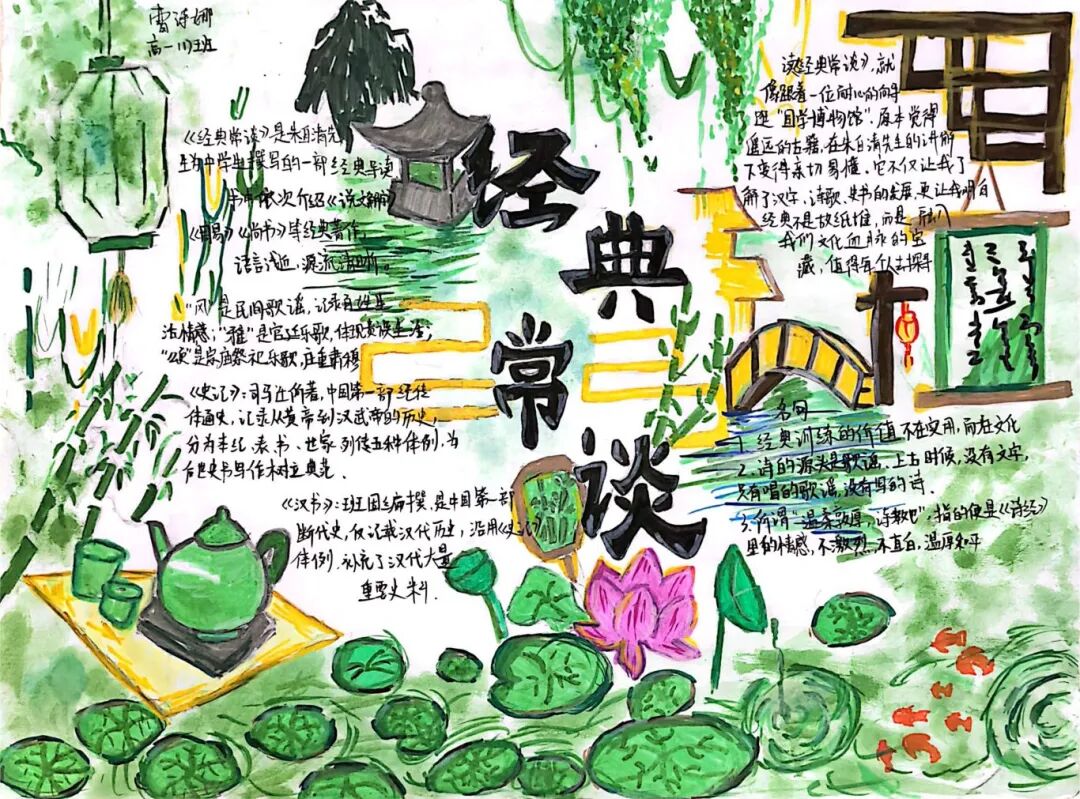 雷诗娜
高一(1)班
经典常谈
《经典常谈》是朱自清先
生为中学生撰写的一部经典导读
书中依次介绍《说文解字》
《周易》《尚书》等经典著作，
语言浅近，源流清晰。
"风"是民间歌谣，记录百姓生
活情感；"雅"是宫廷乐歌，体现贵族生活；
"颂"是宗庙祭祀乐歌，庄重肃穆
《史记》：司马迁所著，中国第一部纪传
体通史，记录从黄帝到汉武帝的历史，
分为本纪、表、书、世家、列传五种体例，为
后世史书写作树立典范．
《汉书》：班固编撰，是中国第一部
断代史，仅记载汉代历史，沿用《史记》
体例，补充了汉代大量
重要史料．
读《经典常谈》，就
像跟着一位耐心的向导
逛"国学博物馆"．原本觉得
遥远的古籍，在朱自清先生的讲解
下变得亲切易懂．它不仅让我了
解了汉字、诗歌、史书的发展，更让我明白
经典不是故纸堆，而是
我们文化血脉的宝
藏，值得每个人去探寻
名句
1．经典训练的价值不在实用，而在文化
2．诗的源头是歌谣．上古时候，没有文字，
只有唱的歌谣，没有写的诗．
3．所谓"温柔敦厚，诗教也"，指的便是《诗经》
里的情感，不激烈，不直白，温厚和平